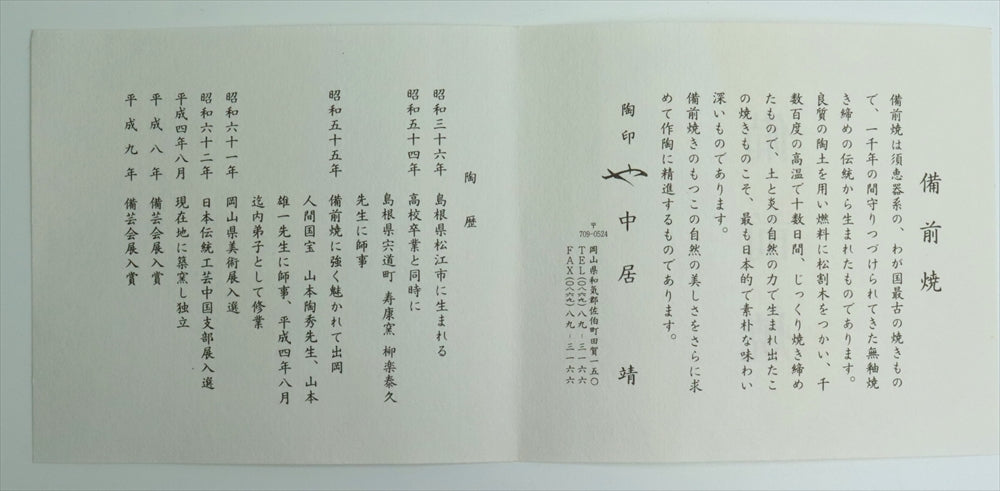 備前焼
備前焼は須恵器系の、わが国最古の焼きもの
で、一千年の間守りつづけられてきた無釉焼
き締めの伝統から生まれたものであります。
良質の陶土を用い燃料に松割木をつかい、千
数百度の高温で十数日間、じっくり焼き締め
たもので、土と炎の自然の力で生まれ出たこ
の焼きものこそ、最も日本的で素朴な味わい
深いものであります。
備前焼きのもつこの自然の美しさをさらに求
めて作陶に精進するものであります。
陶印 や 中居 靖
〒709-0524 岡山県和気郡佐伯町田賀一五〇
TEL(〇八六九)八九-三一六六
FAX(〇八六九)八九-三一六六
陶歴
昭和三十六年 島根県松江市に生まれる
昭和五十四年 高校卒業と同時に
島根県宍道町 寿康窯 柳楽泰久
先生に師事
昭和五十五年 備前焼に強く魅かれて出岡
人間国宝 山本陶秀先生、山本
雄一先生に師事、平成四年八月
迄内弟子として修業
昭和六十一年 岡山県美術展入選
昭和六十二年 日本伝統工芸中国支部展入選
平成四年八月 現在地に築窯し独立
平成八年 備芸会展入賞
平成九年 備芸会展入賞